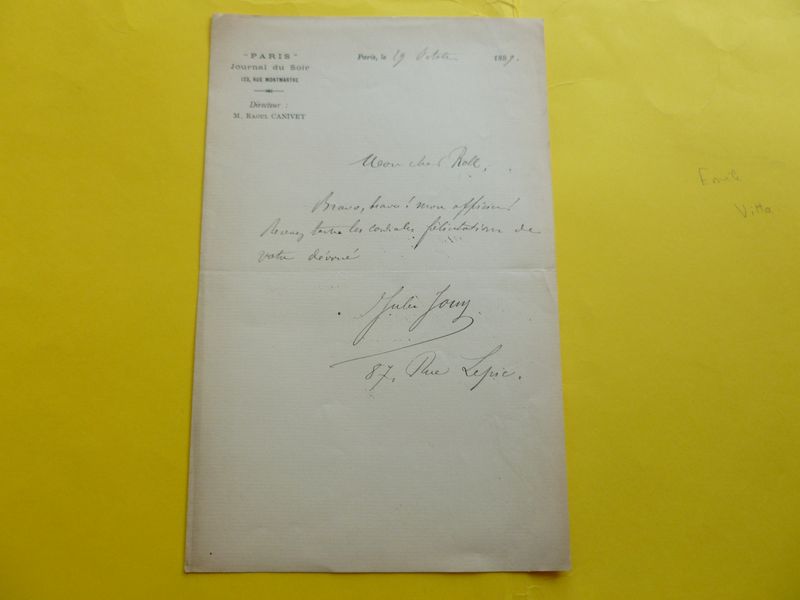 "PARIS"
Journal du Soir
123, RUE MONTMARTRE
Directeur :
M. RAOUL CANIVET
Paris, le 19 Octobre 1889.
Mon cher Roll,
Bravo, bravo! mon officier!
Recevez toutes les cordiales félicitations de
votre dévoué
Jules Jouy
87, Rue Lepic.
Emile
Vitta